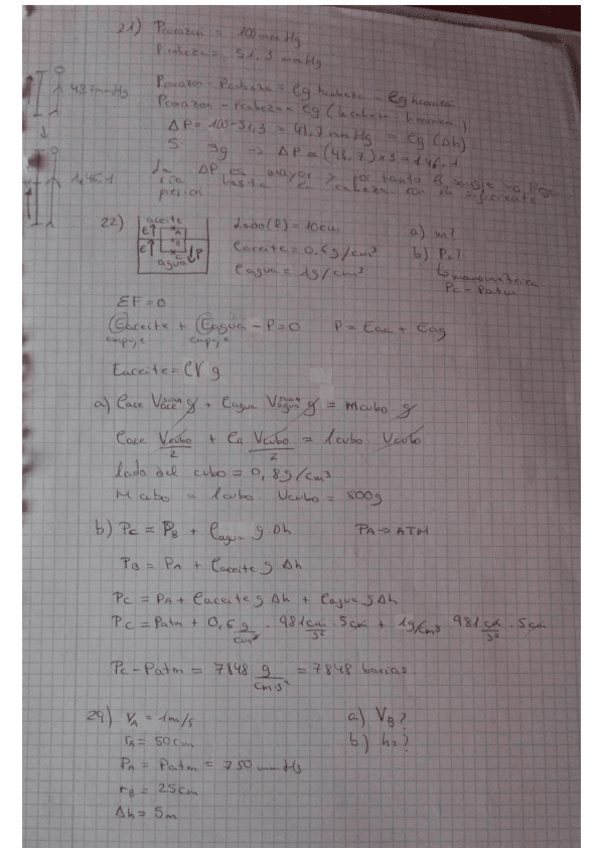 21) Pcorazon = 100 mm Hg
Pcabeza = 51,3 mm Hg
48,7 mmHg
Pcorazon - Pcabeza = ρg hcabeza - ρg hcorazon
Pcorazon - Pcabeza = ρg (hcabeza - hcorazon)
ΔP = 100-51,3 = 48,7 mm Hg = ρg (Δh)
S 3g => ΔP = (48,7) × 3 = 146,1
146,1
ΔP es mayor y por tanto la sangre no
hasta la cabeza con la suficiente
presion
22) aceite
E A
E B P
C
agua
Lado (l) = 10cm
ρaceite = 0,6 g/cm³
ρagua = 1g/cm³
a) m?
b) Pc?
manometrica
Pc - Patm
ΣF = 0
Eaceite + Eagua - P = 0 P = Eac + Eag
empuje empuje
Eaceite = ρV g
a) ρace Vace g + ρagua Vagua g = mcubo g
ρace Vcubo/2 + ρa Vcubo/2 = ρcubo Vcubo
lado del cubo = 0,8g/cm³
M cubo = ρcubo Vcubo = 800g
b) Pc = PB + ρagua g Δh PA → ATM
PB = PA + ρaceite g Δh
Pc = PA + ρaceite g Δh + ρagua g Δh
Pc = Patm + 0,6 g/cm³ · 981 cm/s² · 5cm + 1g/cm³ 981 cm/s² · 5cm
Pc - Patm = 7848 g/cm·s² = 7848 barias
29) VA = 1m/s
rA = 50cm
PA = Patm = 750 mmHg
rB = 25cm
Δh = 5m
a) VB?
b) h2?